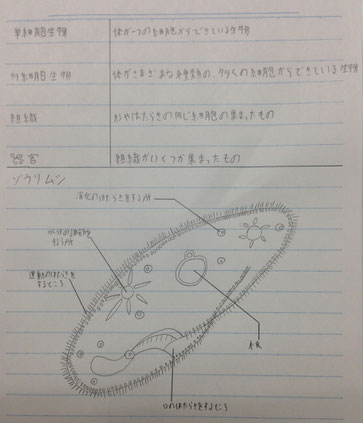 単細胞生物 体が一つの細胞からできている生物
多細胞生物 体がさまざまな種類の、多くの細胞からできている生物
組織 形やはたらきの同じ細胞の集まったもの
器官 組織がいくつか集まったもの
ゾウリムシ
消化のはたらきをする所
水分の調節を
する所
運動のはたらきを
するところ
核
口のはたらきをするところ